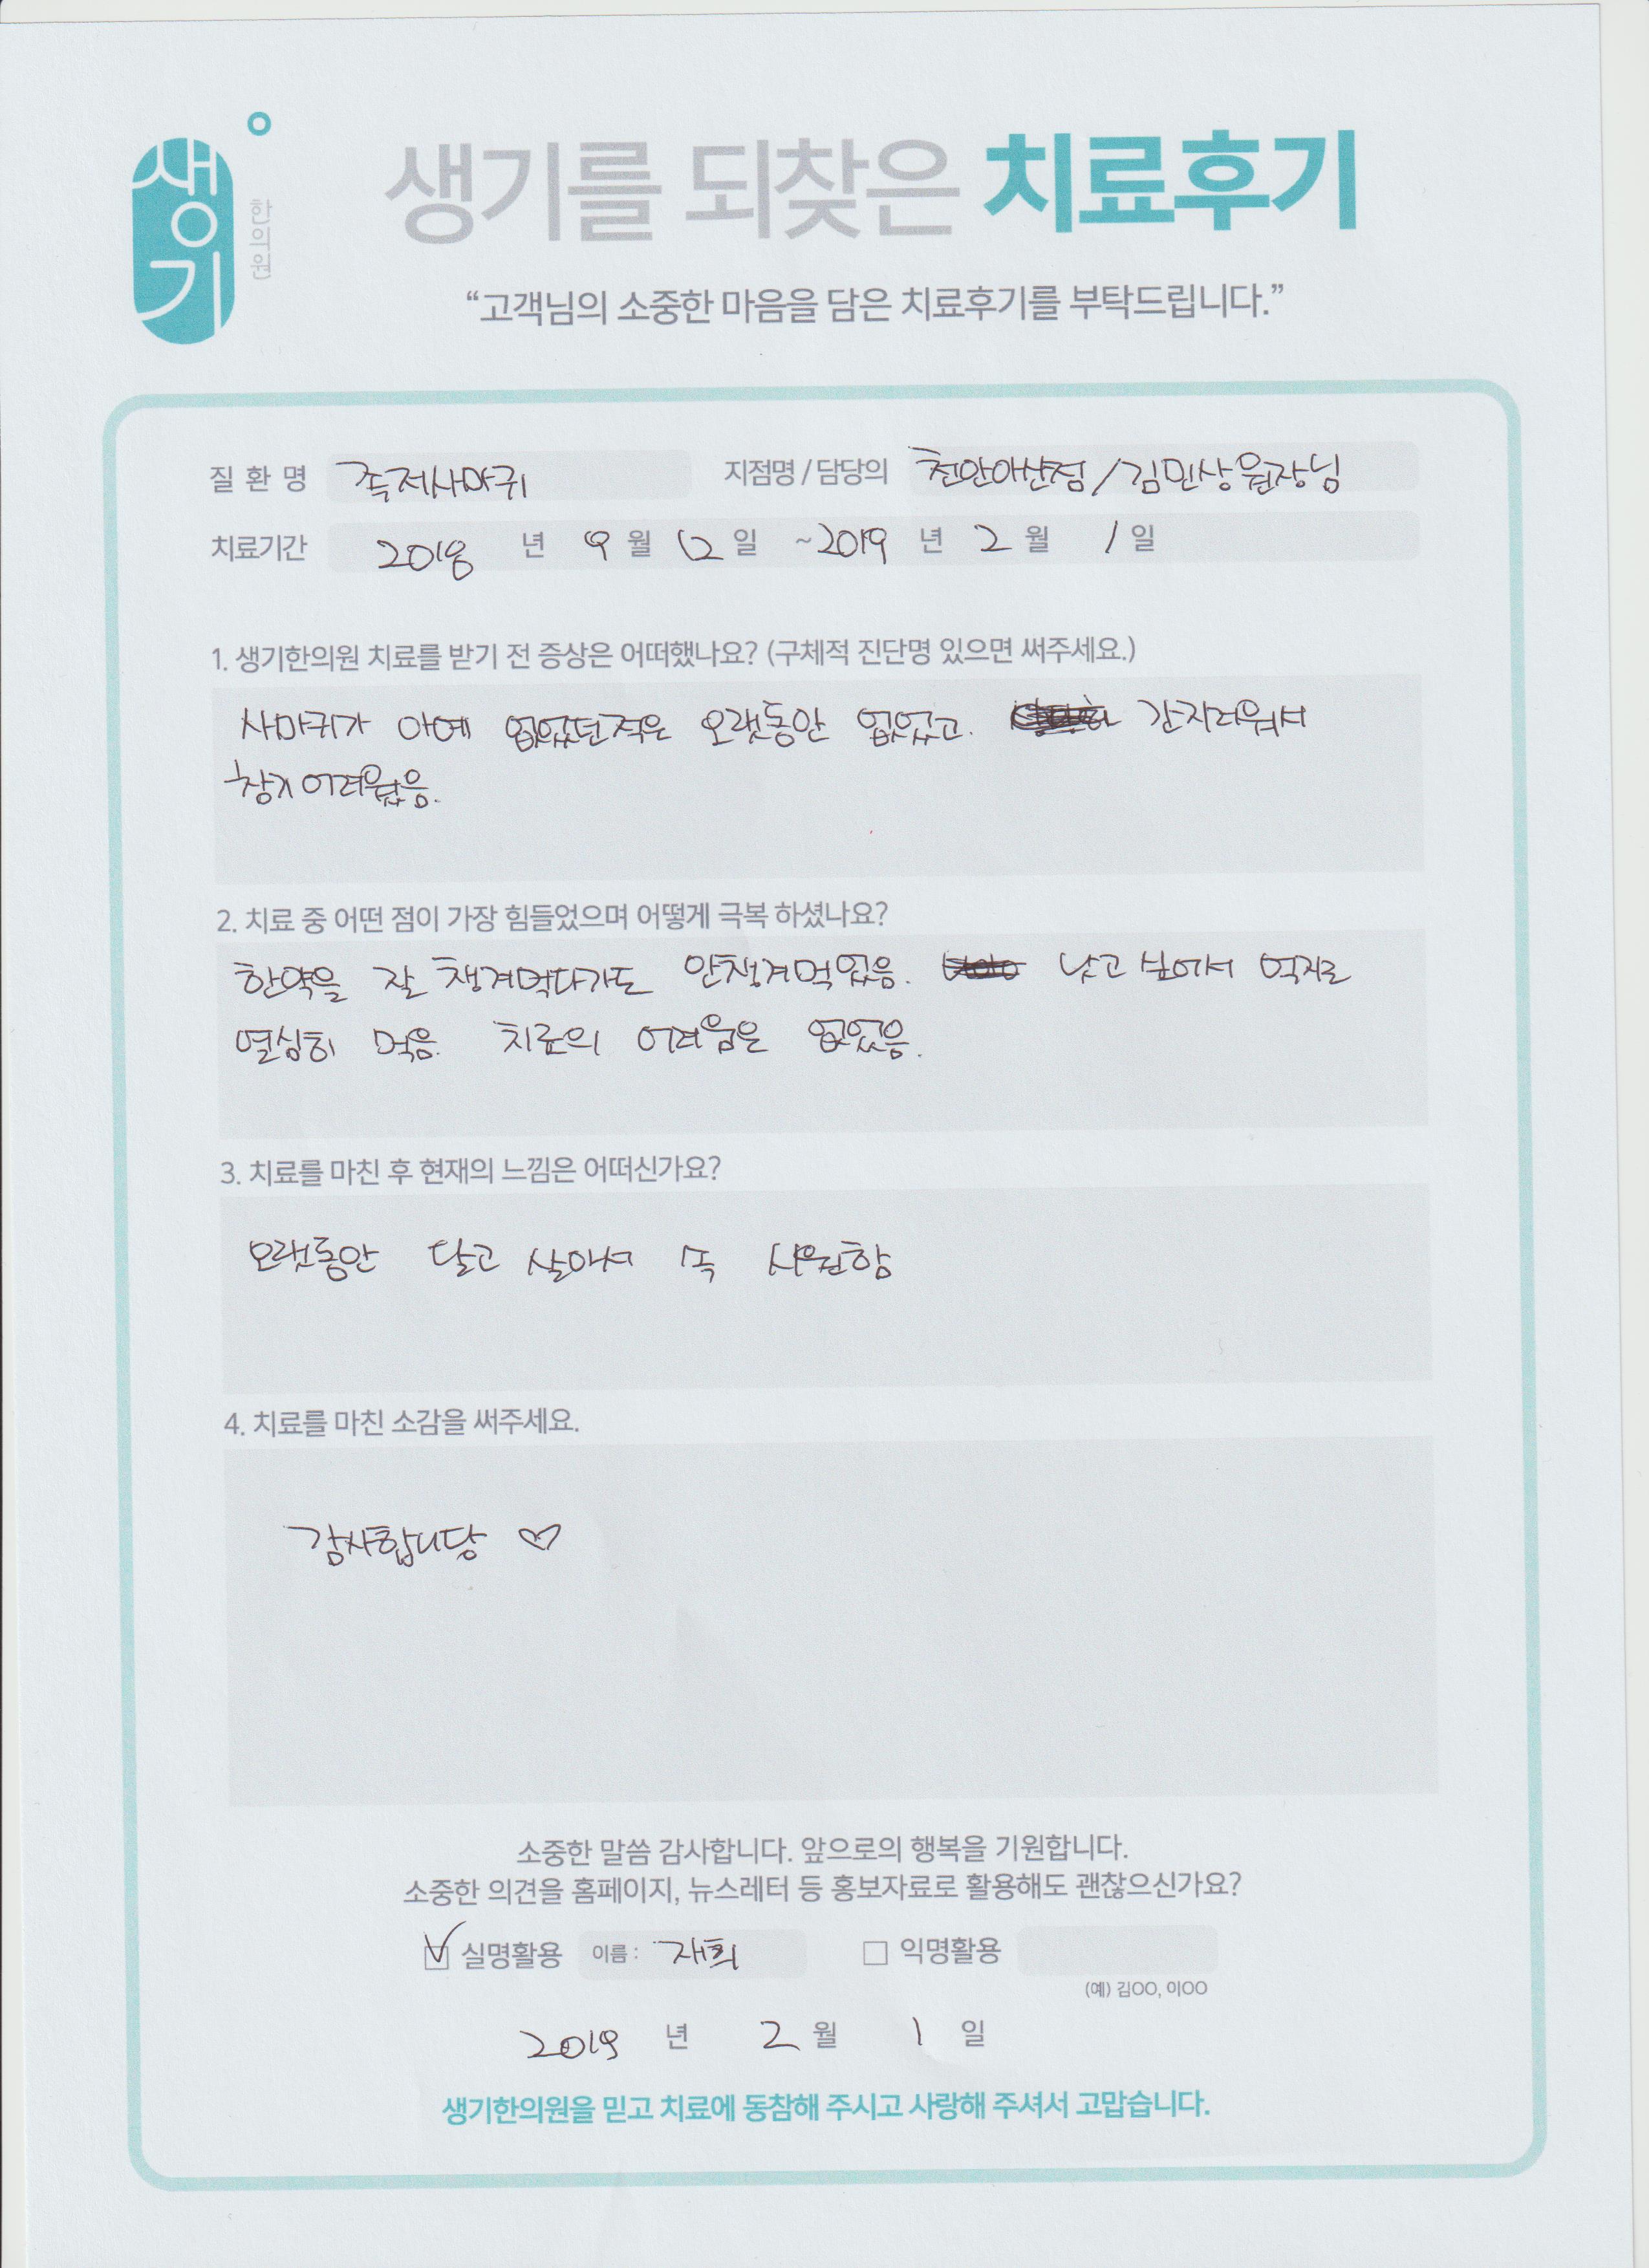 생기
한의원
생기를 되찾은 치료후기
“고객님의 소중한 마음을 담은 치료후기를 부탁드립니다.”
질 환 명 족저사마귀 지점명 / 담당의 천안아산점 / 김민상 원장님
치료기간 2018 년 9 월 12 일 ~ 2019 년 2 월 1 일
1. 생기한의원 치료를 받기 전 증상은 어떠했나요? (구체적 진단명 있으면 써주세요.)
사마귀가 아예 없었던적은 오랫동안 없었고. 간지러워서
참기 어려웠음.
2. 치료 중 어떤 점이 가장 힘들었으며 어떻게 극복 하셨나요?
한약을 잘 챙겨먹다가도 안챙겨먹었음. 낫고 싶어서 억지로
열심히 먹음. 치료의 어려움은 없었음.
3. 치료를 마친 후 현재의 느낌은 어떠신가요?
오랫동안 달고 살아서 속 시원함
4. 치료를 마친 소감을 써주세요.
감사합니당 ♡
소중한 말씀 감사합니다. 앞으로의 행복을 기원합니다.
소중한 의견을 홈페이지, 뉴스레터 등 홍보자료로 활용해도 괜찮으신가요?
☑ 실명활용 이름 : 재희 □ 익명활용
(예) 김OO, 이OO
2019 년 2 월 1 일
생기한의원을 믿고 치료에 동참해 주시고 사랑해 주셔서 고맙습니다.